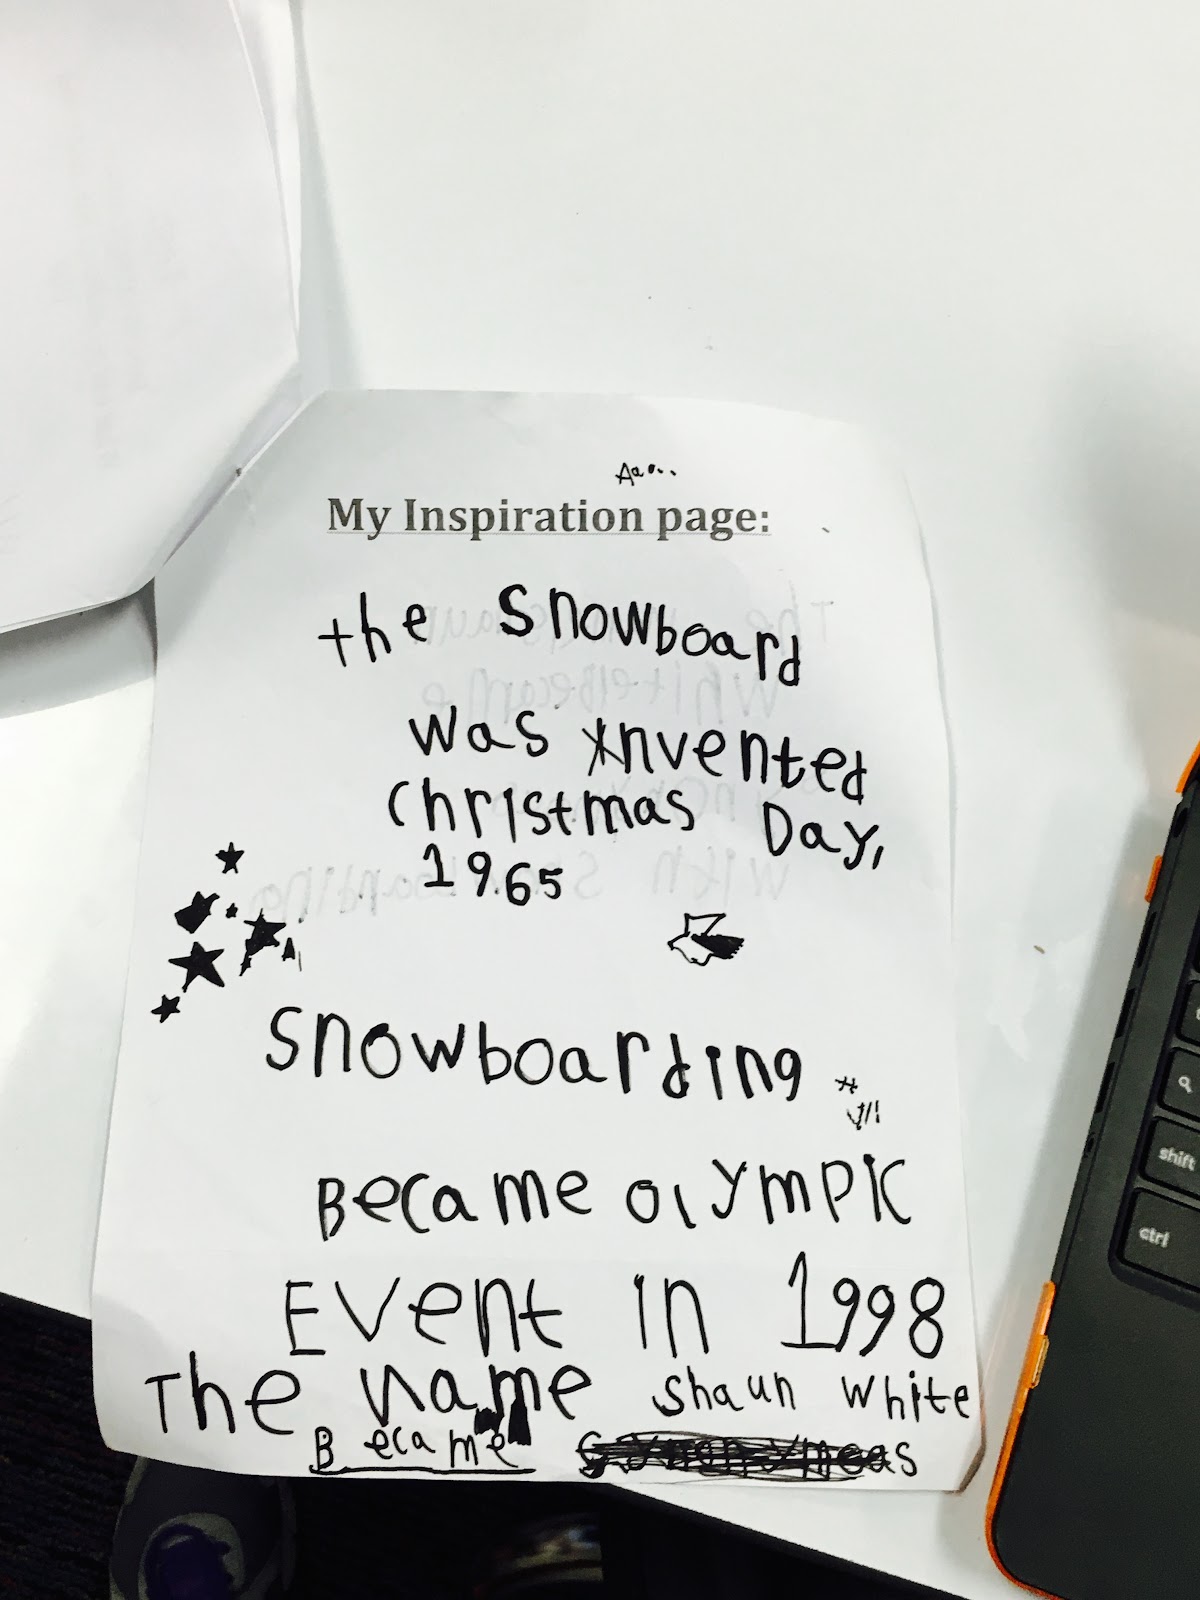 Aa...
My Inspiration page:
the snowboard
was invented
christmas Day,
1965
snowboarding
Became olympic
Event in 1998
The name shaun white
Became
shift
ctrl